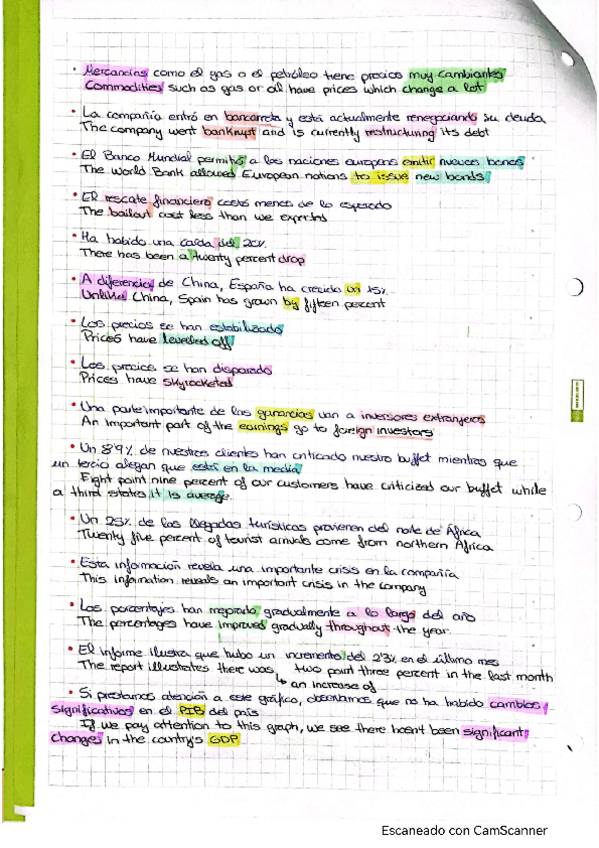 • Mercancías como el gas o el petróleo tiene precios muy cambiantes
Commodities such as gas or oil have prices which change a lot
• La compañía entró en bancarrota y está actualmente renegociando su deuda
The company went bankrupt and is currently restructuring its debt
• El Banco Mundial permitió a las naciones europeas emitir nuevos bonos
The World Bank allowed European nations to issue new bonds
• El rescate financiero costó menos de lo esperado
The bailout cost less than we expected
• Ha habido una caída del 20%
There has been a twenty percent drop
• A diferencia de China, España ha crecido un 15%
Unlike China, Spain has grown by fifteen percent
• Los precios se han estabilizado
Prices have levelled off
• Los precios se han disparado
Prices have skyrocketed
• Una parte importante de las ganancias van a inversores extranjeros
An important part of the earnings go to foreign investors
• Un 8'9% de nuestros clientes han criticado nuestro buffet mientras que
un tercio alegan que está en la media
Eight point nine percent of our customers have criticized our buffet while
a third states it is average.
• Un 25% de las llegadas turísticas provienen del norte de África
Twenty five percent of tourist arrivals come from northern Africa
• Esta información revela una importante crisis en la compañía
This information reveals an important crisis in the company
• Los porcentajes han mejorado gradualmente a lo largo del año
The percentages have improved gradually throughout the year.
• El informe ilustra que hubo un incremento del 2'3% en el último mes
The report illustrates there was two point three percent in the last month
↳ an increase of
• Si prestamos atención a este gráfico, observamos que no ha habido cambios
significativos en el PIB del país
If we pay attention to this graph, we see there hasn't been significant
changes in the country's GDP
Escaneado con CamScanner